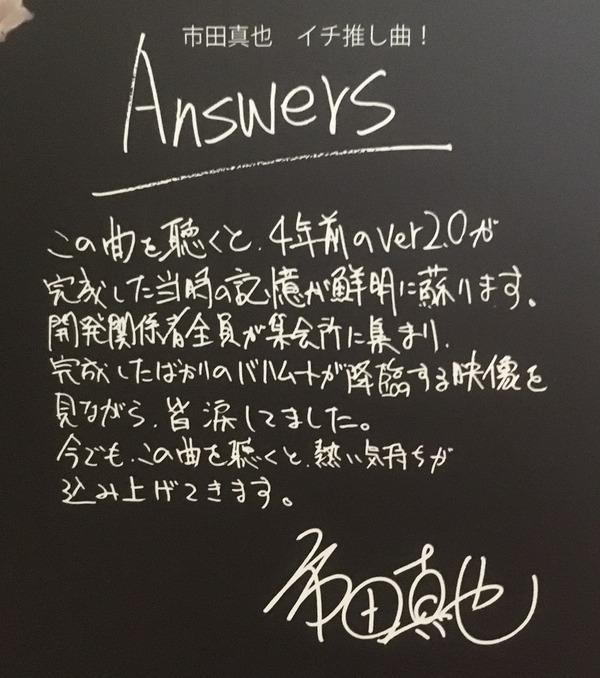 市田真也　イチ推し曲！
Answers
この曲を聴くと、4年前のver2.0が
完成した当時の記憶が鮮明に蘇ります。
開発関係者全員が集会所に集まり、
完成したばかりのバハムートが降臨する映像を
見ながら、皆涙してました。
今でも、この曲を聴くと、熱い気持ちが
込み上げてきます。
市田真也